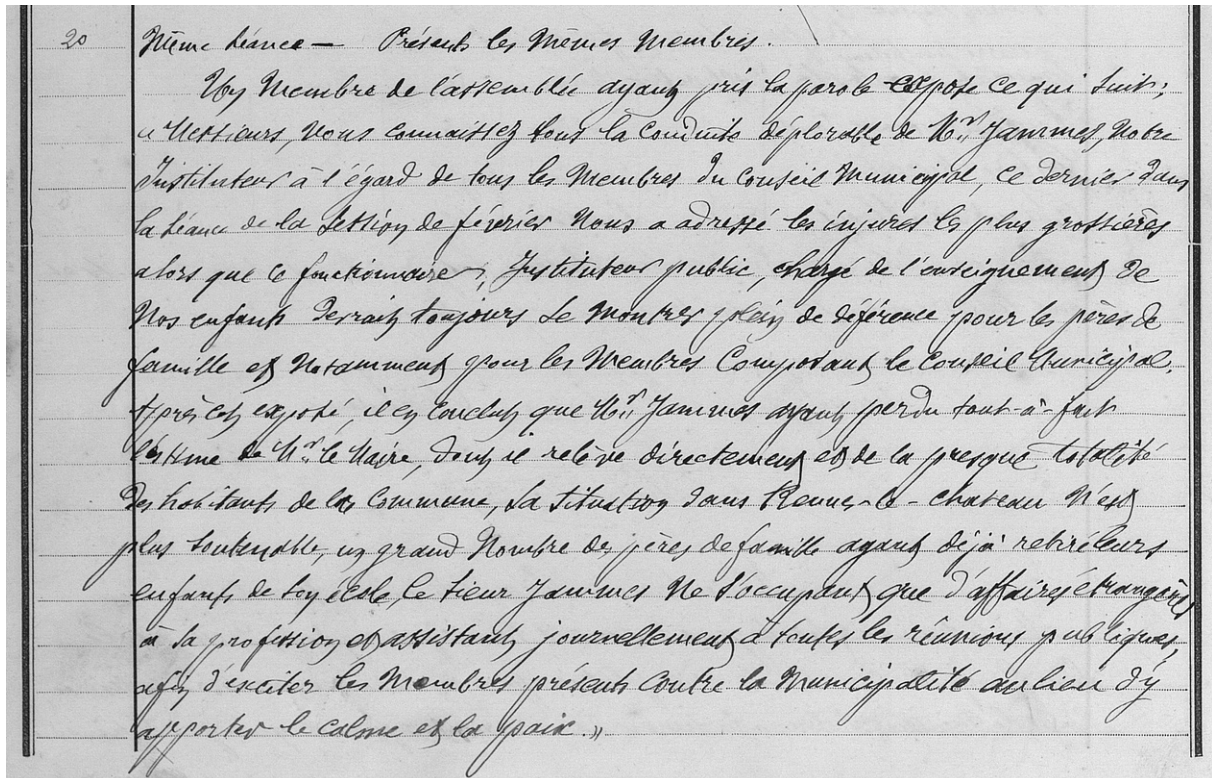 20 Même séance — Présents les Mêmes Membres.
Un Membre de l'assemblée ayant pris la parole expose ce qui suit;
« Messieurs, Vous connaissez tous la Conduite déplorable de Mr. Jammes, Notre
Instituteur à l'égard de tous les Membres du Conseil Municipal, ce dernier dans
la séance de la session de février Nous a adressé les injures les plus grossières
alors que ce fonctionnaire, Instituteur public, chargé de l'enseignement de
Nos enfants devrait toujours se montrer plein de déférence pour les pères de
famille et Notamment pour les Membres Composant le Conseil Municipal.
Après cet exposé, il en conclut que Mr. Jammes ayant perdu tout-à-fait
l'estime de Mr. le Maire, dont il relève directement et de la presque totalité
des habitants de la Commune, sa situation dans Rennes-le-chateau N'est
plus soutenable, un grand Nombre des pères de famille ayant déjà retiré leurs
enfants de son école, le sieur Jammes Ne s'occupant que d'affaires étrangères
à sa profession et assistant journellement à toutes les réunions publiques,
afin d'exciter les Membres présents Contre la Municipalité au lieu d'y
apporter le calme et la paix. »